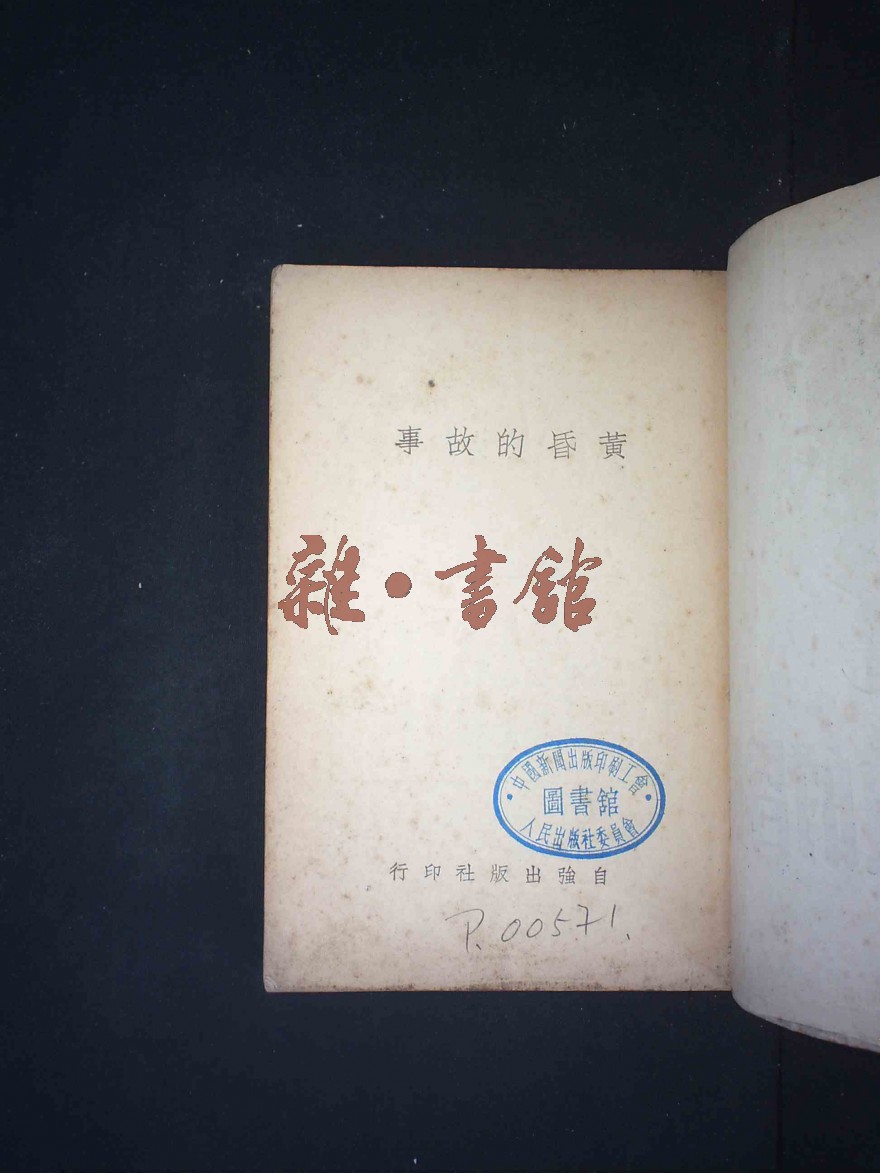 黃昏的故事
雜·書舘
中國新聞出版印刷工會
圖書舘
人民出版社委員會
自強出版社印行
P.00571.